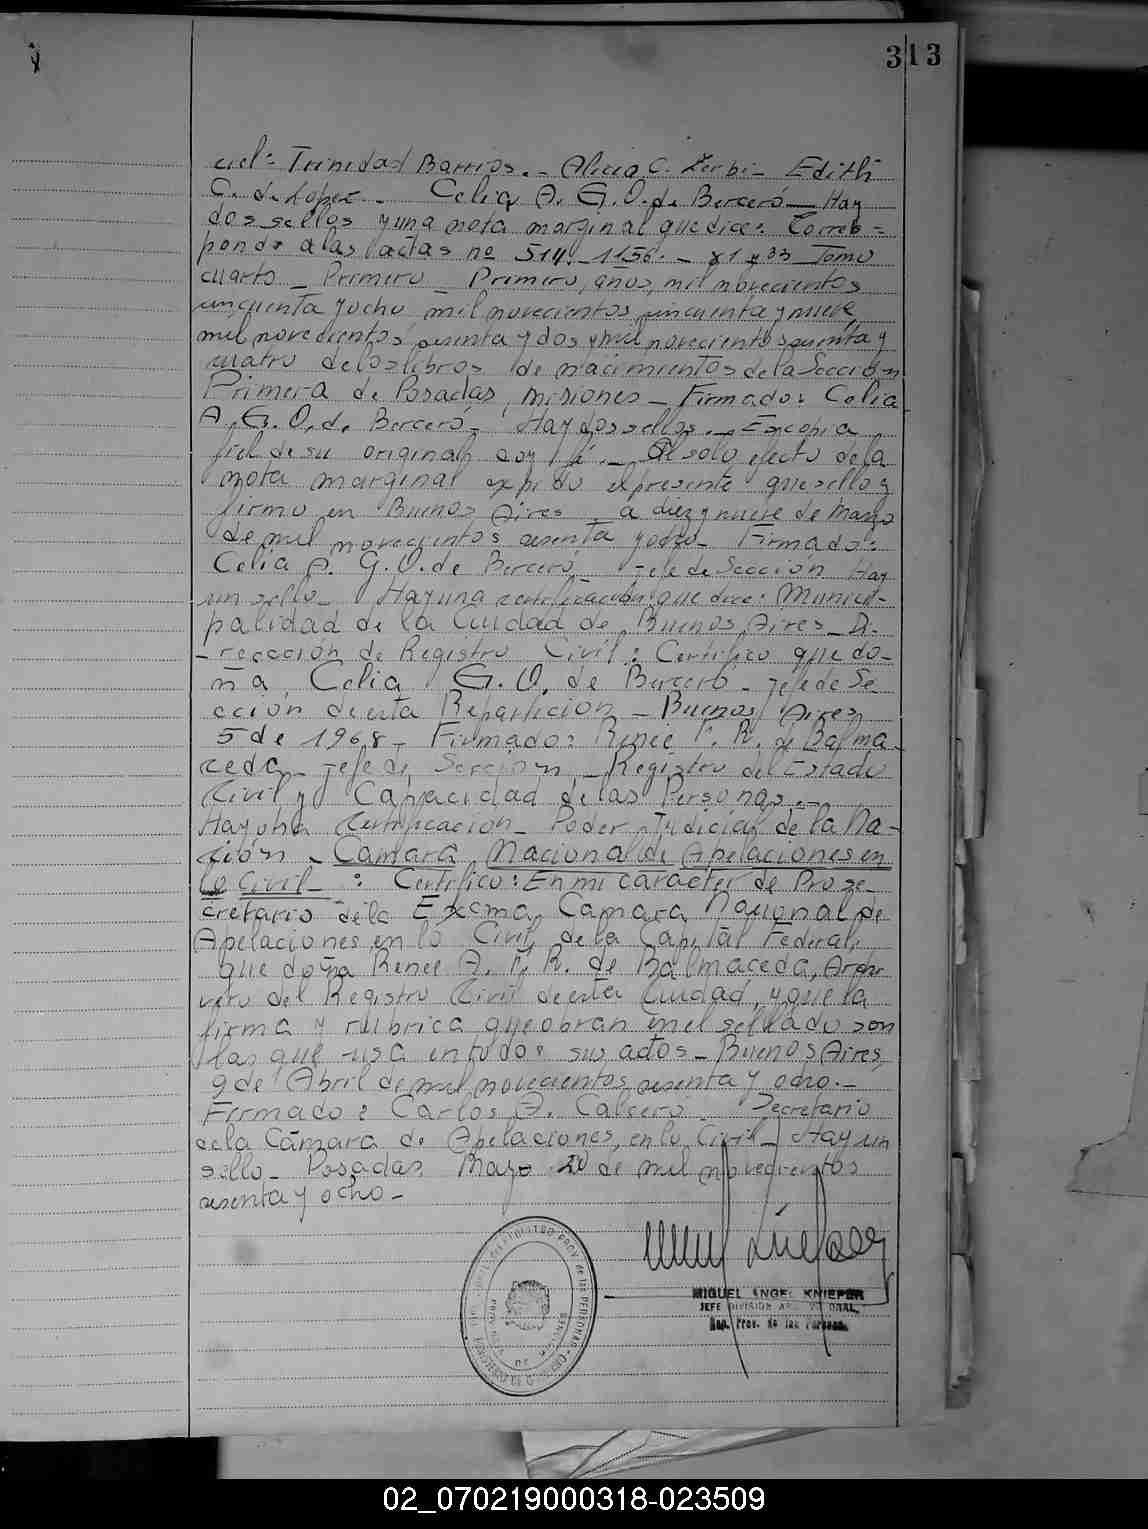 313
ciel= Trinidad Barrios.- Alicia C. Zerbi- Edith
C. de Lopez- Celia A. G. O. de Berceró- Hay
dos sellos y una nota marginal que dice: Corres=
ponde a las actas nº 514.- 1156.- Tomo
cuarto - Primero - Primero, años, mil novecientos
cincuenta y ocho mil novecientos cincuenta y nueve,
mil novecientos sesenta y dos y mil novecientos sesenta y
cuatro de los libros de nacimientos de la Sección
Primera de Posadas, misiones- Firmado: Celia
A. G. O. de Berceró- Hay dos sellos.- Es copia
fiel de su original doy fé.- Al solo efecto de la
nota marginal expido el presente que sello y
firmo en Buenos Aires a diez y nueve de Marzo
de mil novecientos sesenta y ocho- Firmado:
Celia A. G. O. de Berceró Jefe de Sección Hay
un sello- Hay una certificación que dice: Munici-
palidad de la Ciudad de Buenos Aires- Di-
-rección de Registro Civil: Certifico que do-
ña Celia G. O. de Berceró- Jefe de Se
cción de esta Repartición- Buenos Aires
5 de 1968- Firmado: Renee F. R. de Balma-
ceda- Jefe de Sección- Registro del Estado
Civil y Capacidad de las Personas.-
Hay una certificación- Poder Judicial de la Na-
ción- Camara Nacional de Apelaciones en
lo Civil- : Certifico: En mi caracter de Prose-
cretario de la Excma, Camara Nacional de
Apelaciones en lo Civil de la Capital Federal,
que doña Renee A. F. R. de Balmaceda, Archi
vero del Registro Civil de esta Ciudad, y que la
firma y rubrica que obran en el sellado son
las que usa en todos sus actos- Buenos Aires,
9 de Abril de mil novecientos sesenta y ocho.-
Firmado: Carlos A. Calcero Secretario
de la Cámara de Apelaciones, en lo Civil- Hay un
sello- Posadas, Mayo 20 de mil novecientos
sesenta y ocho-
MIGUEL ANGEL KNIEPER
JEFE DIVISION
Reg. Prov. de las Personas
02_070219000318-023509